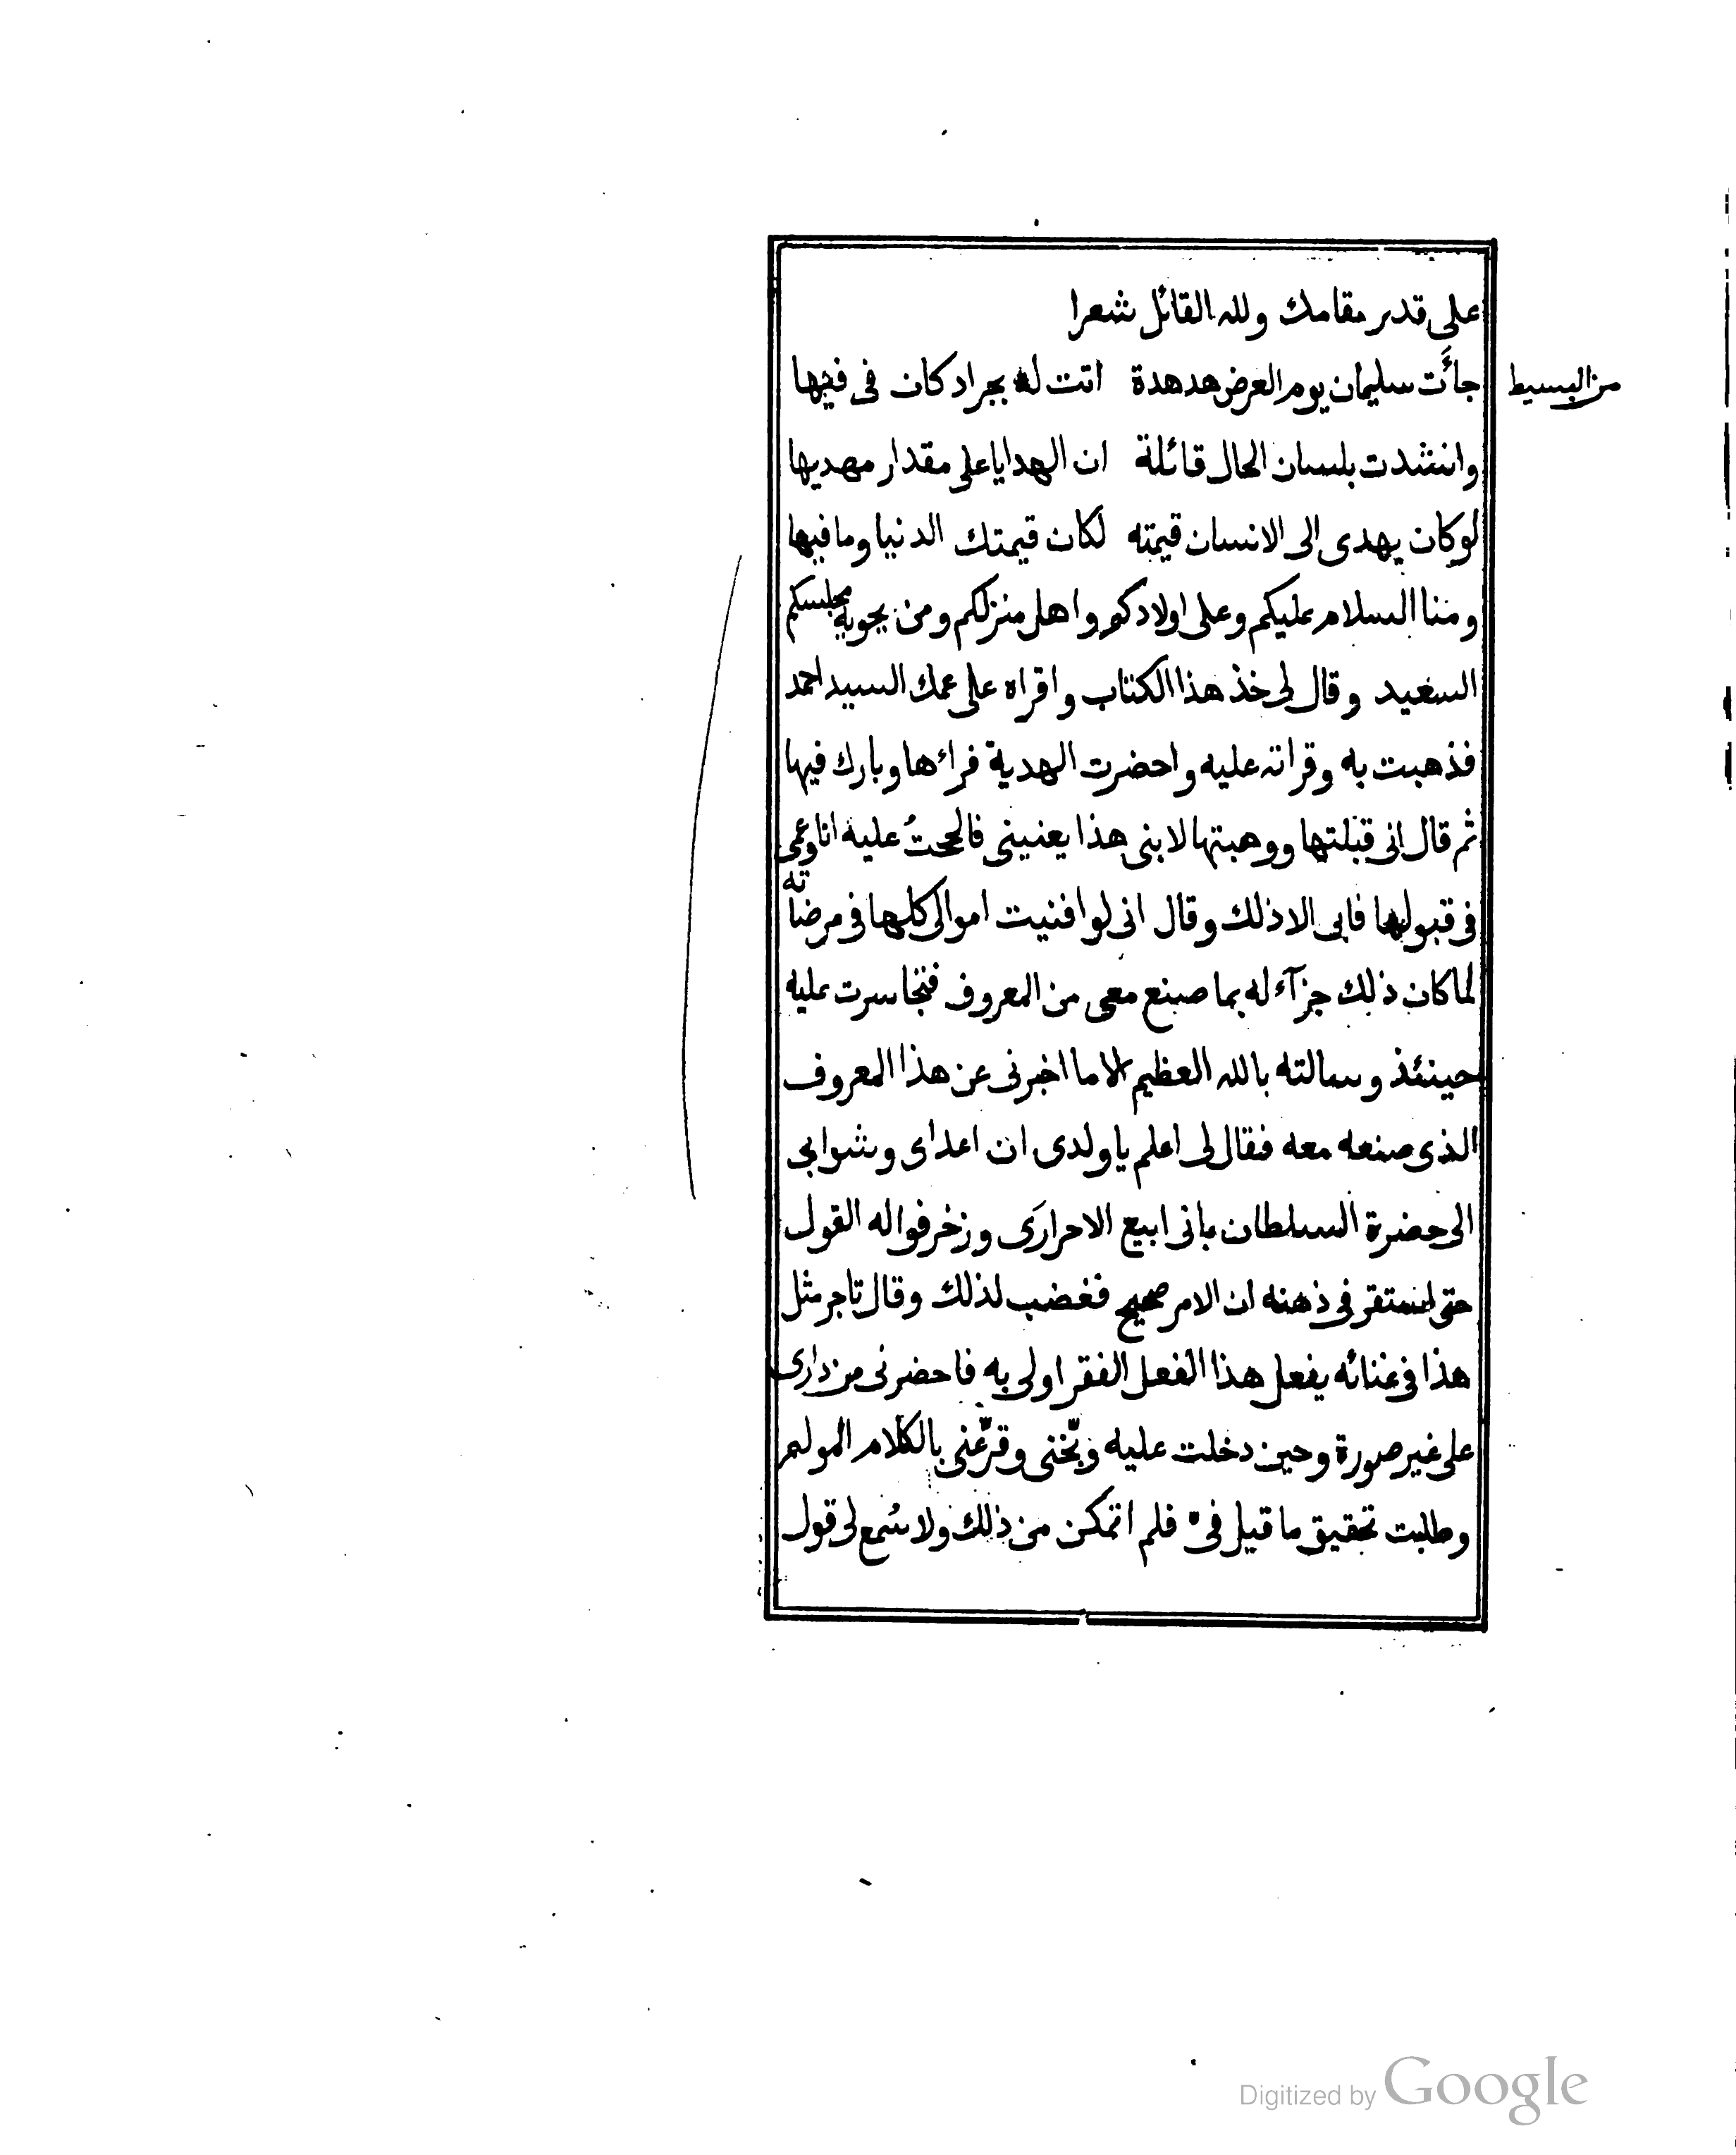 على قدر مقامك ولله القائل شعرا
من البسيط
جأت سليمان يوم العرض هدهدة اتت له بجراد كان فى فيها
وانشدت بلسان الحال قائلة ان الهدايا على مقدار مهديها
لوكان يهدى الى الانسان قيمته لكان قيمتك الدنيا وما فيها
ومنا السلام عليكم وعلى اولادكم واهل منزلكم ومن يحويه مجلسكم
السعيد وقال لى خذ هذا الكتاب واقراه على عمك السيد احمد
فذهبت به وقراته عليه واحضرت الهدية فراءها وبارك فيها
ثم قال انى قبلتها ووهبتها لابنى هذا يعنينى فالححتُ عليه انا وعمى
فى قبولها فابى الا ذلك وقال انى لو افنيت اموالى كلها فى مرضاته
لما كان ذلك جزآء له بما صنع معى من المعروف فتجاسرت عليه
حينئذ وسالته بالله العظيم الا ما اخبرنى عن هذا المعروف
الذى صنعه معه فقال لى اعلم يا ولدى ان اعداى وشوا بى
الى حضرة السلطان بانى ابيع الاحرارَى وزخرفوا له القول
حتى استقر فى ذهنه ان الامر صحيح فغضب لذلك وقال تاجر مثل
هذا فى غنائه يفعل هذا الفعل الفقر اولى به فاحضرنى من دارى
على غير صورة وحين دخلت عليه وبّخنى وقرّعنى بالكلام المولم
وطلبت تحقيق ما قيل فىّ فلم اتمكن من ذلك ولا سُمع لى قول
Digitized by Google